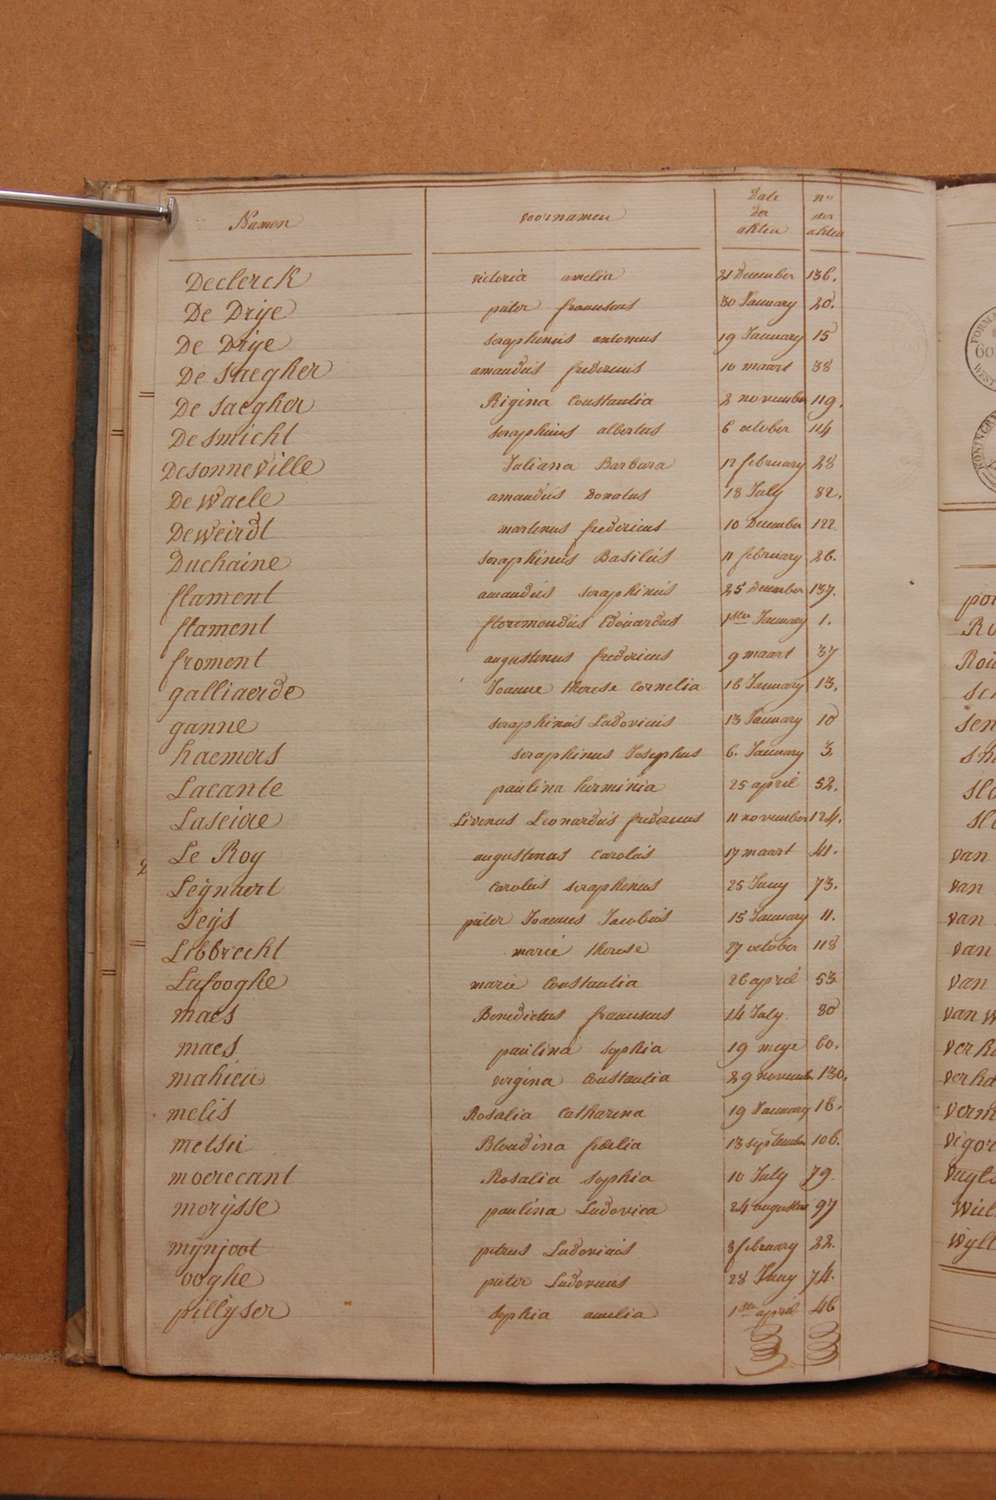 Namen voornamen Date der akten n° der akten
Declerck victoria amelia 31 December 136.
De Drije pieter franciscus 30 January 20.
De Drije seraphinus antonius 19 January 15
De Saegher amandus fredericus 10 maart 38
De Saegher Rigina Constantia 2 november 119.
De Smicht seraphinus albertus 6 october 114
Desonneville Juliana Barbara 12 february 28
De waele amandus Donatus 18 July 82.
De weirdt martinus fredericus 10 December 122.
Duchaine seraphinus Basilius 11 february 26.
flament amandus seraphinus 25 December 137.
flament florimondus Edouardus 1ster January 1.
froment augustinus fredericus 9 maart 37
galliaerde Joanne therese Cornelia 16 January 13.
ganne seraphinus Ludovicus 13 January 10
haemers seraphinus Josephus 6. January 3.
Lacante paulina herminia 25 april 52.
Laseire Livinus Leonardus fredericus 11 november 124.
Le Roy augustinus carolus 17 maart 41.
Leijnaert carolus seraphinus 25 Juny 73.
Leijs pieter Joannes Jacobus 15 January 11.
Libbrecht marie therese 27 october 118
Lafooghe marie Constantia 26 april 53
maes Benedictus franciscus 14 July. 80
maes paulina sophia 19 meye 60.
mahieu virgina Constantia 29 novemb. 130.
melis Rosalia Catharina 19 January 16.
metsu Blondina fidelia 13 september 106.
moerecant Rosalia sophia 10 July 79.
morijsse paulina Ludovica 24 augustus 97
mijnjoot petrus Ludovicus 8 february 22.
ooghe pieter Ludovicus 28 Juny 74.
pillijser sophia amelia 1ste april 46